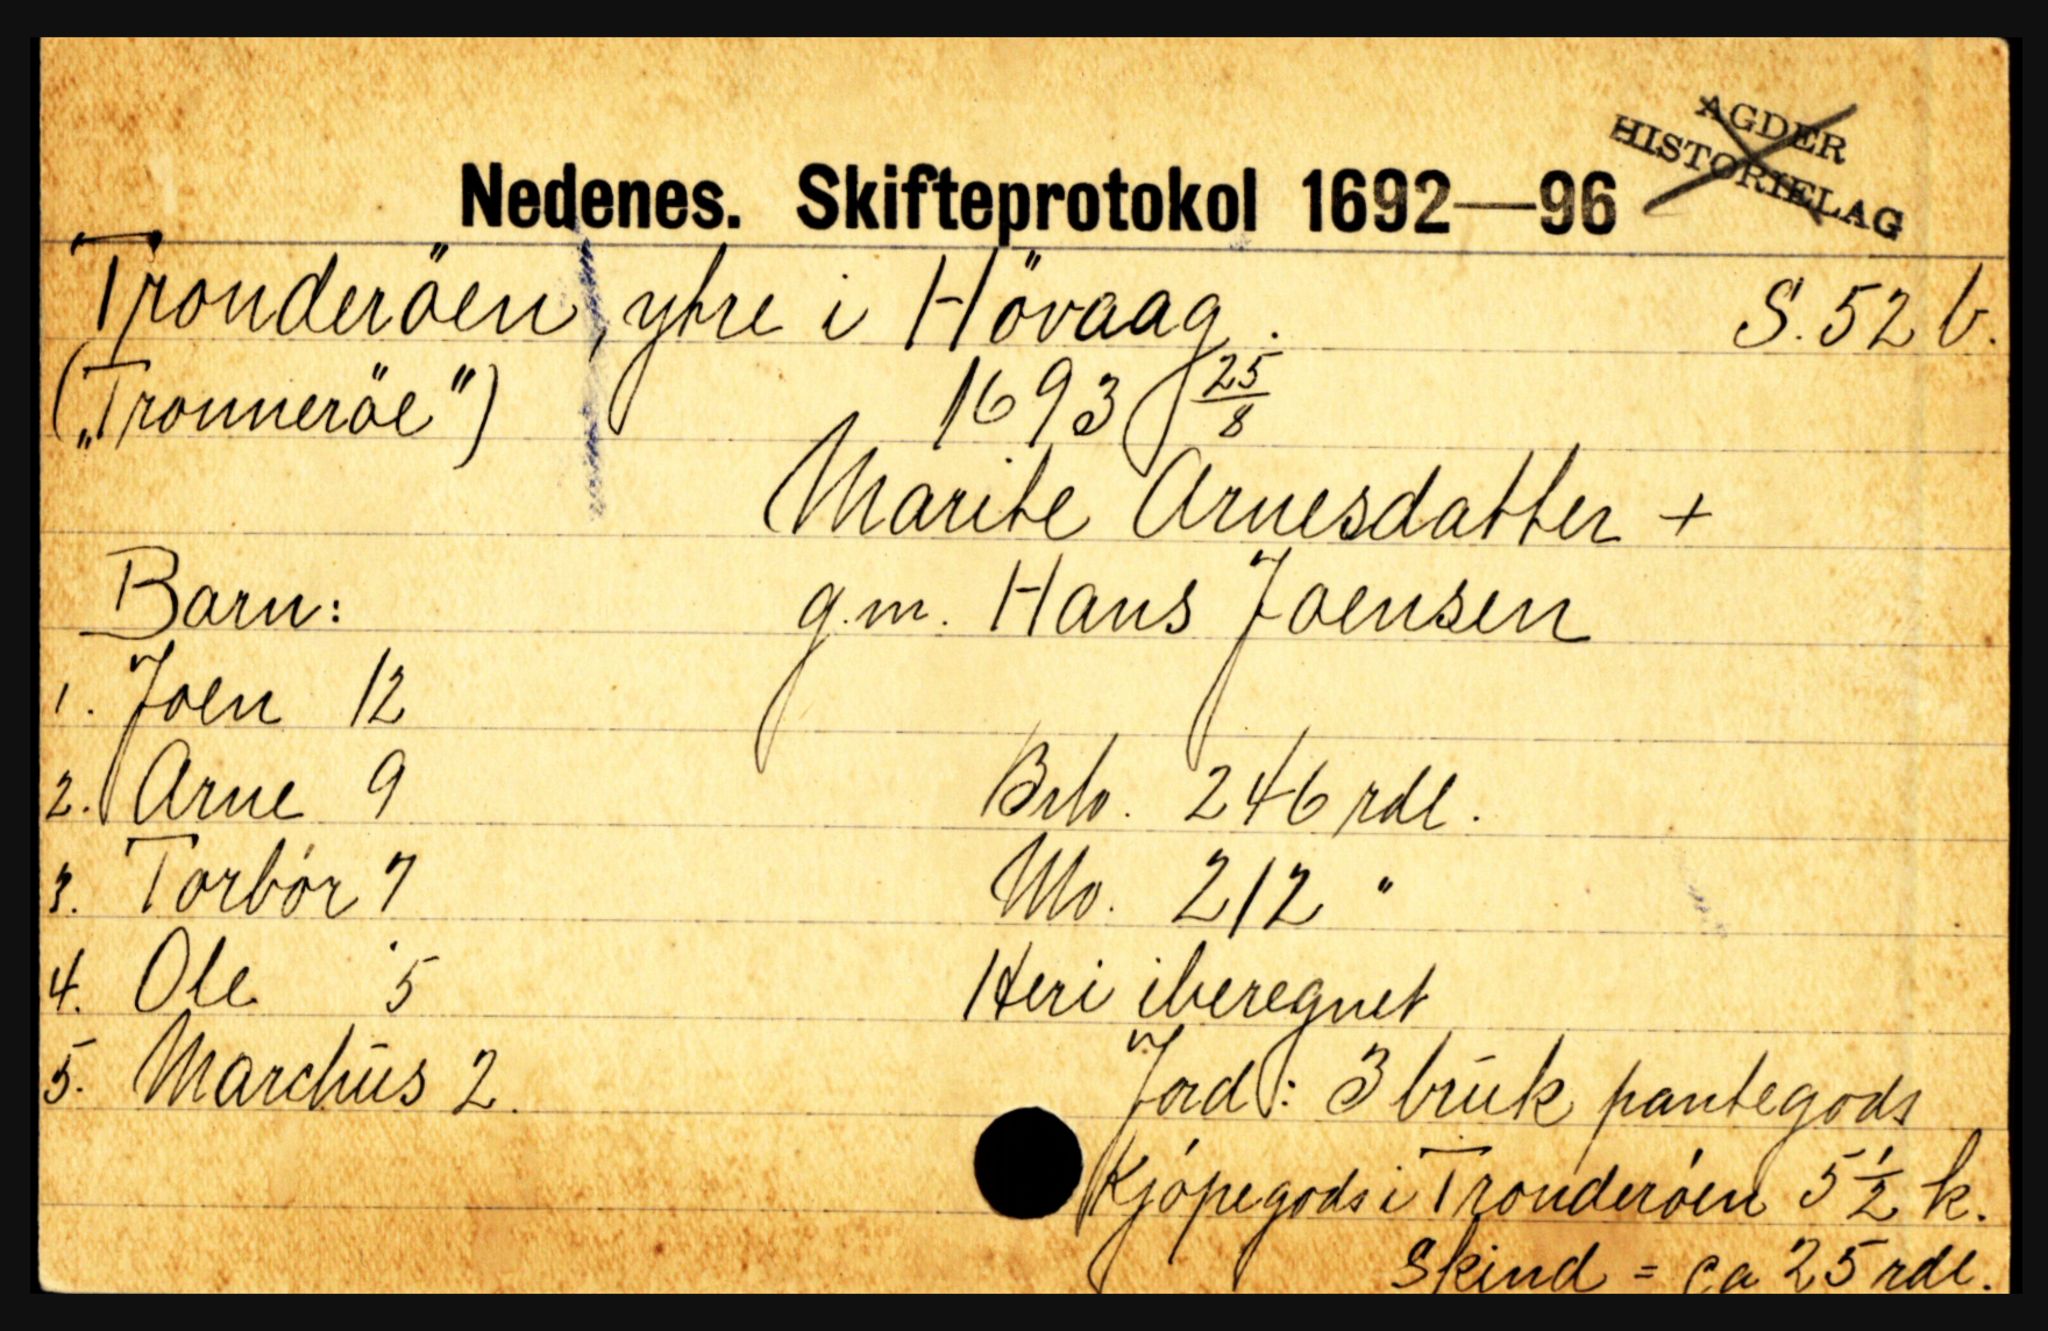 AGDER
HISTORIELAG
Nedenes. Skifteprotokol 1692—96
Tronderöen, ytre i Hövaag. S. 52 b.
(„Tronneröe") 1693 25/8
Marite Arnesdatter +
Barn: g.m. Hans Joensen
1. Joen 12
2. Arne 9 Brto. 246 rdl.
3. Torbór 7 No. 212 "
4. Ole 5 Heri iberegnet
5. Marchūs 2. Jord: 3 brūk pantegods
Kjópegods i Tronderóen 5 1/2 k.
skind = ca 25 rdl.